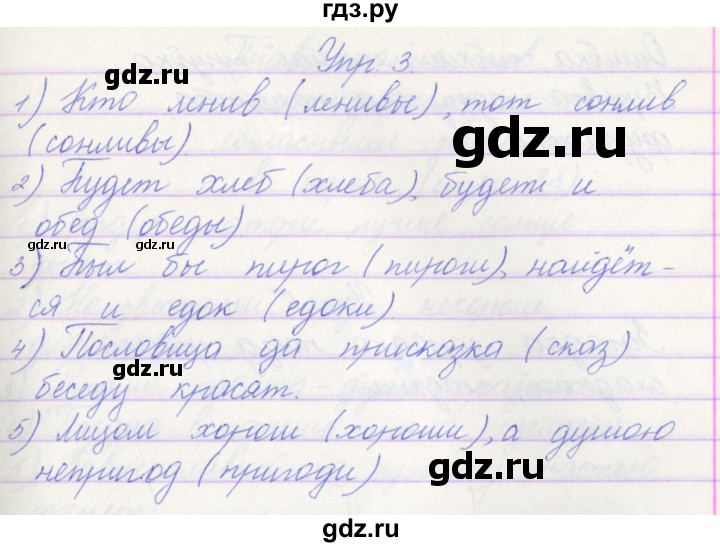 гдз.ру
Упр. 3.
1) Кто ленив (ленивы), тот сонлив
(сонливы).
gdz.ru
gdz.ru
2) Будет хлеб (хлеба), будет и
обед (обеды).
gdz.ru
gdz.ru
gdz.ru
3) Был бы пирог (пироги), найдёт-
ся и едок (едоки).
gdz.ru
gdz.ru
4) Пословица да присказка (сказ)
gdz.ru
беседу красят.
gdz.ru
5) Лицом хорош (хороши), а душою
непригод (пригоди)
gdz.ru
gdz.ru
gdz.ru